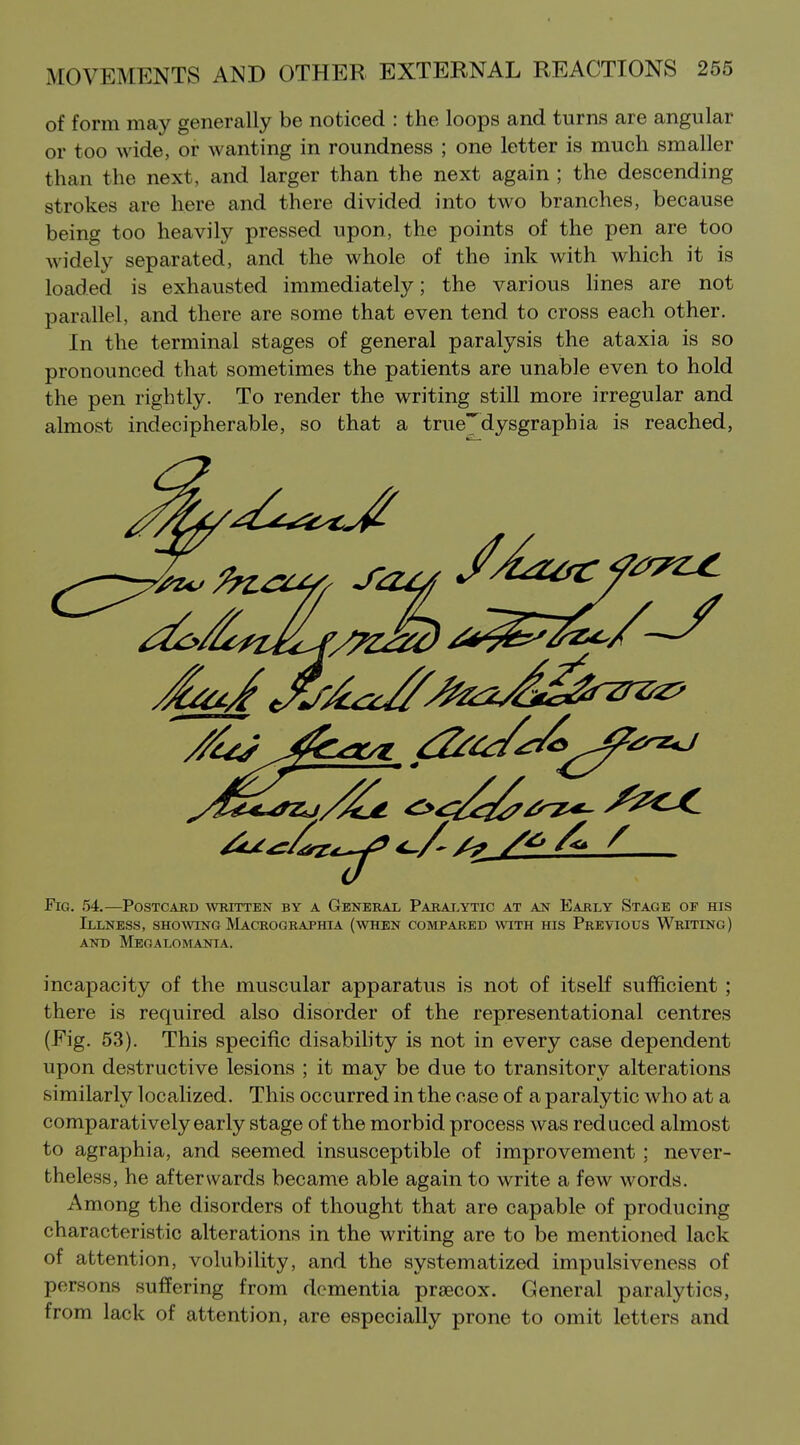 MOVEMENTS AND OTHER EXTERNAL REACTIONS 255
of form may generally be noticed : the loops and turns are angular
or too wide, or wanting in roundness ; one letter is much smaller
than the next, and larger than the next again ; the descending
strokes are here and there divided into two branches, because
being too heavily pressed upon, the points of the pen are too
widely separated, and the whole of the ink with which it is
loaded is exhausted immediately; the various lines are not
parallel, and there are some that even tend to cross each other.
In the terminal stages of general paralysis the ataxia is so
pronounced that sometimes the patients are unable even to hold
the pen rightly. To render the writing still more irregular and
almost indecipherable, so that a true dysgraphia is reached,
may say
Fig. 54.—Postcard written by a General Paralytic at an Early Stage of his
Illness, showing Macrographia (when compared with his Previous Writing)
and Megalomania.
incapacity of the muscular apparatus is not of itself sufficient ;
there is required also disorder of the representational centres
(Fig. 53). This specific disability is not in every case dependent
upon destructive lesions ; it may be due to transitory alterations
similarly localized. This occurred in the case of a paralytic who at a
comparatively early stage of the morbid process was reduced almost
to agraphia, and seemed insusceptible of improvement ; never-
theless, he afterwards became able again to write a few words.
Among the disorders of thought that are capable of producing
characteristic alterations in the writing are to be mentioned lack
of attention, volubility, and the systematized impulsiveness of
persons suffering from dementia præcox. General paralytics,
from lack of attention, are especially prone to omit letters and